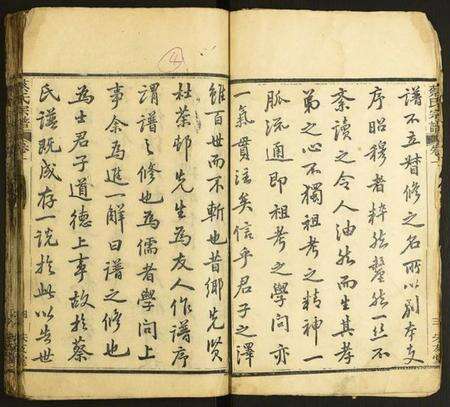 譜不立贅修之名所以別本支
序昭穆者粹然釐然一絲不
紊讀之令人油然而生其孝
弟之心不獨祖考之精神一
脈流通即祖考之學問亦
一氣貫注矣信乎君子之澤
雖百世而不斬也昔鄉先賢
杜茶邨先生為友人作譜序
謂譜之修也為儒者學問上
事余為進一解曰譜之修也
為士君子道德上事故於蔡
氏譜既成存一說於此以告世
蔡氏宗譜